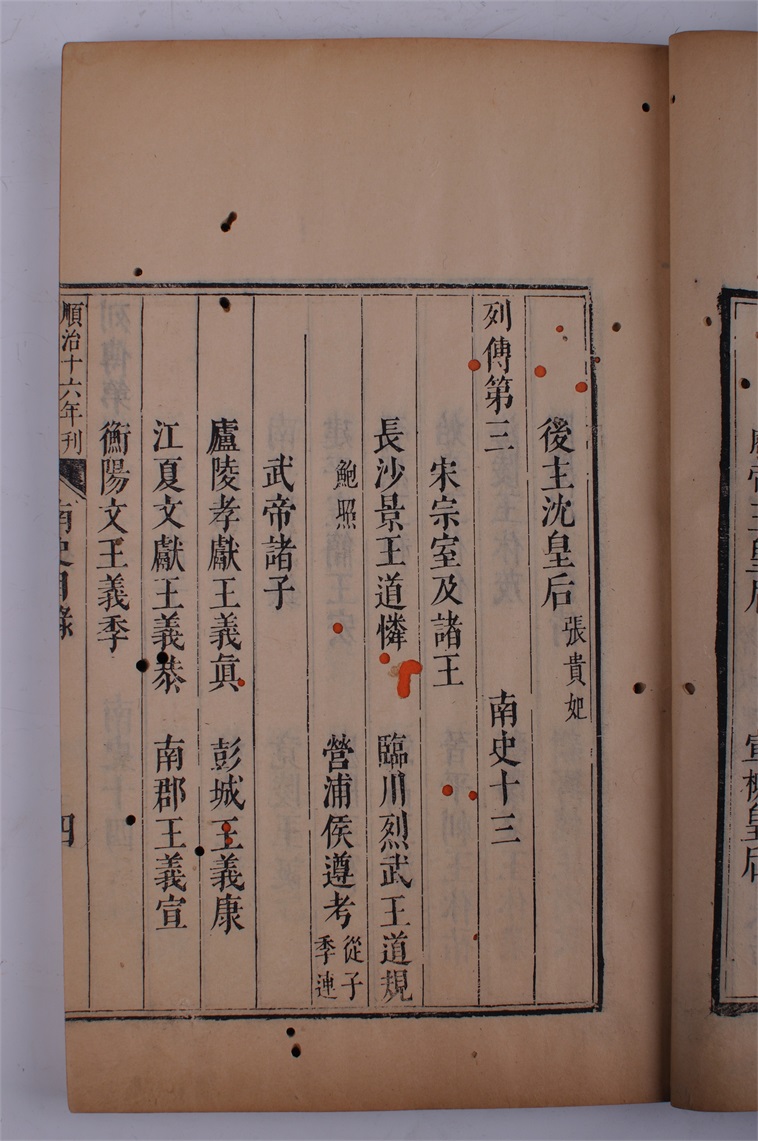 後主沈皇后 張貴妃
列傳第三 南史十三
宋宗室及諸王
長沙景王道憐 臨川烈武王道規
鮑照 營浦侯遵考 從子季連
武帝諸子
廬陵孝獻王義眞 彭城王義康
江夏文獻王義恭 南郡王義宣
衡陽文王義季
順治十六年刊 南史目錄 四